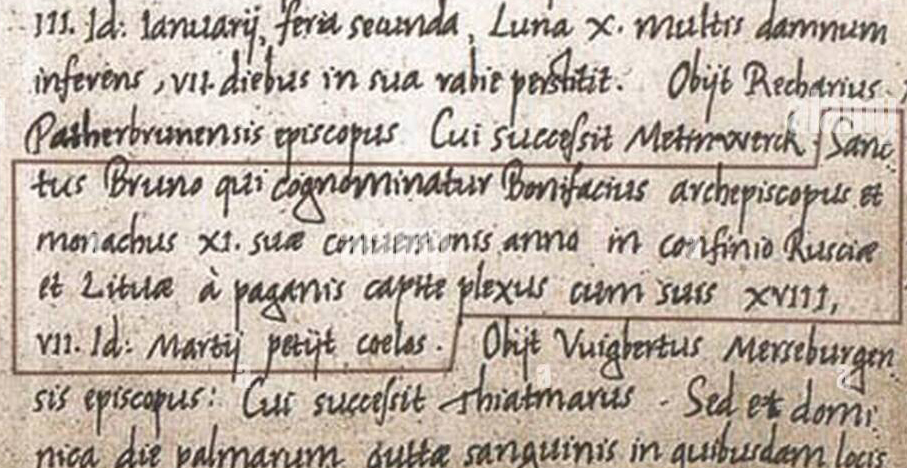 III. Id: Ianuarij, feria secunda, Luna X. multis damnum
inferens, VII. diebus in sua rabie perstitit. Obijt Recharius
Patherbrunensis episcopus Cui successit Metinwerck. Sanc
tus Bruno qui cognominatur Bonifacius archepiscopus et
monachus XI. suæ conuersionis anno in confinio Rusciæ
et Lituæ à paganis capite plexus cum suis XVIII,
VII. Id: Martij petijt coelos. Obijt Vuigbertus Merseburgen
sis episcopus: Cui successit Thiatmarus. Sed et domi
nica die palmarum guttæ sanguinis in quibusdam locis